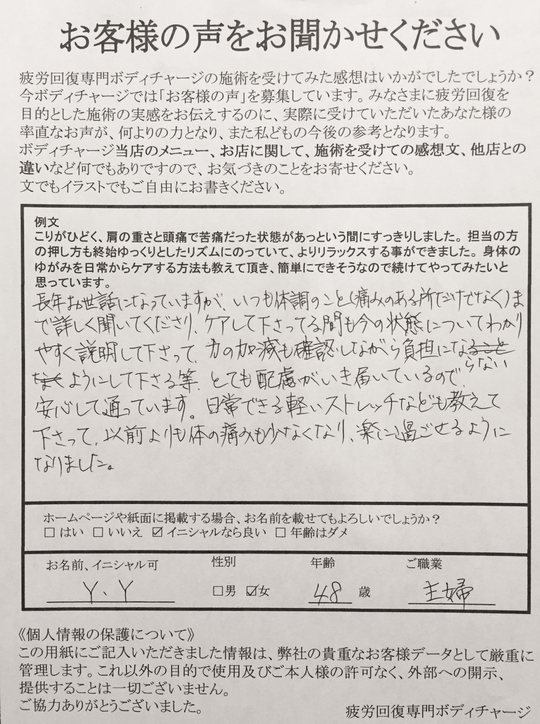 お客様の声をお聞かせください
疲労回復専門ボディチャージの施術を受けてみた感想はいかがでしたでしょうか？
今ボディチャージでは「お客様の声」を募集しています。みなさまに疲労回復を
目的とした施術の実感をお伝えするのに、実際に受けていただいたあなた様の
率直なお声が、何よりの力となり、また私どもの今後の参考となります。
ボディチャージ当店のメニュー、お店に関して、施術を受けての感想文、他店との
違いなど何でもありですので、お気づきのことをお寄せください。
文でもイラストでもご自由にお書きください。
例文
こりがひどく、肩の重さと頭痛で苦痛だった状態があっという間にすっきりしました。担当の方
の押し方も終始ゆっくりとしたリズムにのっていて、よりリラックスする事ができました。身体の
ゆがみを日常からケアする方法も教えて頂き、簡単にできそうなので続けてやってみたいと
思っています。
長年お世話になっていますが、いつも体調のこと(痛みのある所だけでなく)ま
で詳しく聞いてくださり、ケアして下さってる間も今の状態についてわかり
やすく説明して下さって、力の加減も確認しながら負担にな
らない
ようにして下さる等、とても配慮がいき届いているので
安心して通っています。日常できる軽いストレッチなども教えて
下さって、以前よりも体の痛みも少なくなり、楽に過ごせるように
なりました。
ホームページや紙面に掲載する場合、お名前を載せてもよろしいでしょうか？
□ はい □ いいえ ☑ イニシャルなら良い □ 年齢はダメ
お名前、イニシャル可 性別 年齢 ご職業
Y、Y □男 ☑女 48 歳 主婦
《個人情報の保護について》
この用紙にご記入いただきました情報は、弊社の貴重なお客様データとして厳重に
管理します。これ以外の目的で使用及びご本人様の許可なく、外部への開示、
提供することは一切ございません。
ご協力ありがとうございました。
疲労回復専門ボディチャージ